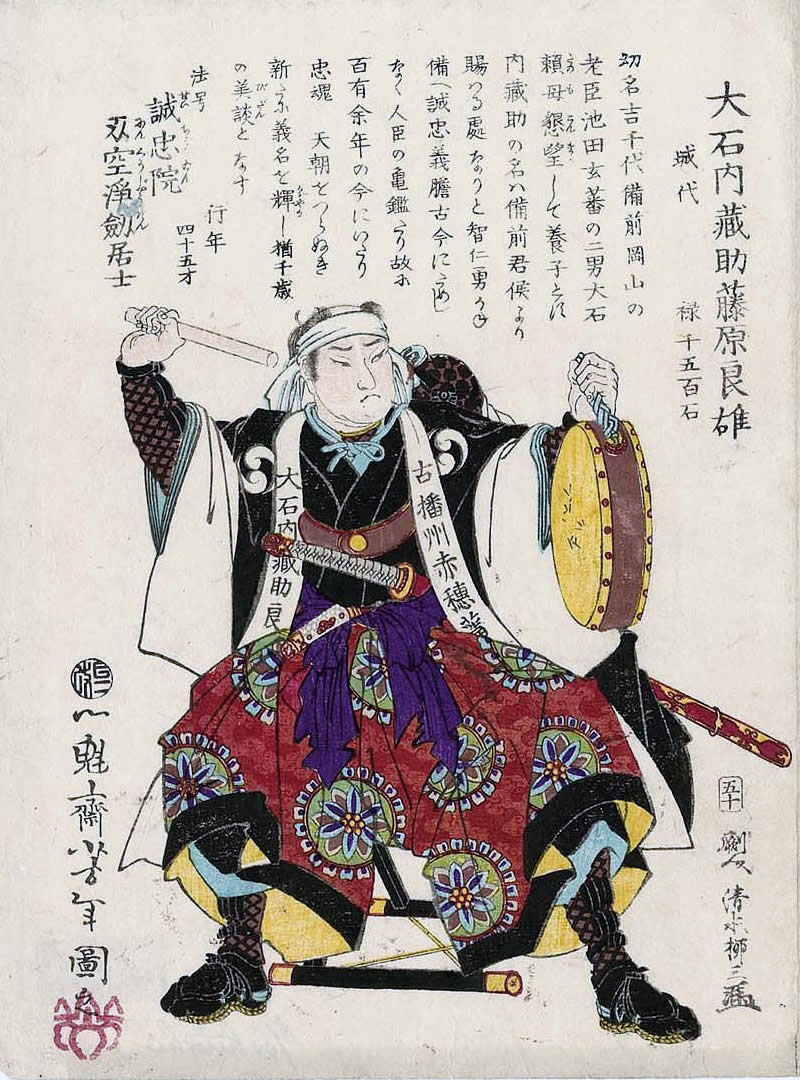 大石内藏助藤原良雄
城代
禄 千五百石
初名吉千代備前岡山の
老臣池田玄蕃の二男大石
頼母懇望して養子とす
内藏助の名ハ備前君侯より
賜つる處なりと智仁勇かね
備へ誠忠義膽古今に
なく人臣の亀鑑たり故に
百有余年の今にいたり
忠魂 天朝をつらぬき
新に義名を輝し猶千歳
の美談となす
法号
誠忠院
刄空淨劔居士
行年
四十五才
古播州赤穂藩
大石内藏助良
一魁齋芳年圖
五十
清水柳三